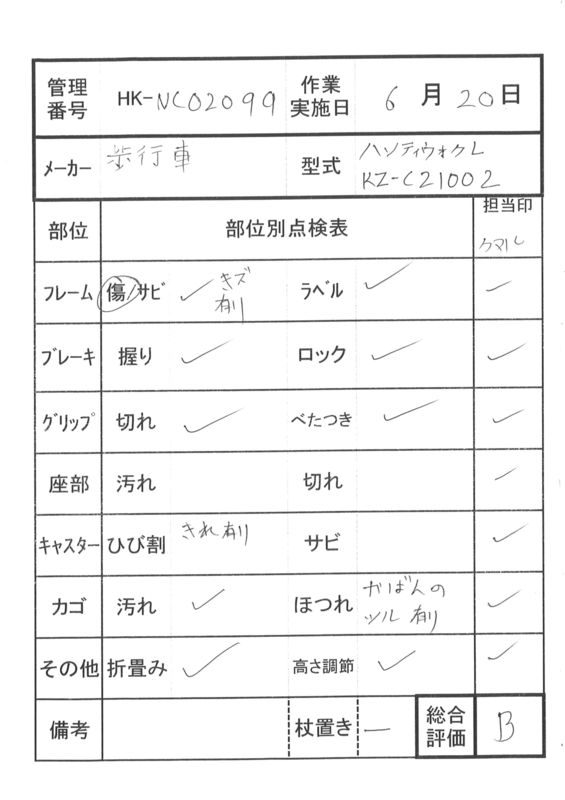 管理番号 HK-NC02099 作業実施日 6月20日
メーカー 歩行車 型式 ハンディウォクL
KZ-C21002
部位 部位別点検表 担当印
フレーム 傷/サビ ✓ キズ有り ラベル ✓ ✓
ブレーキ 握り ✓ ロック ✓ ✓
グリップ 切れ ✓ べたつき ✓ ✓
座部 汚れ 切れ ✓
キャスター ひび割 きれ有り サビ ✓
カゴ 汚れ ✓ ほつれ かばんの
ツル 有り ✓
その他 折畳み ✓ 高さ調節 ✓ ✓
備考 杖置き ー 総合評価 B